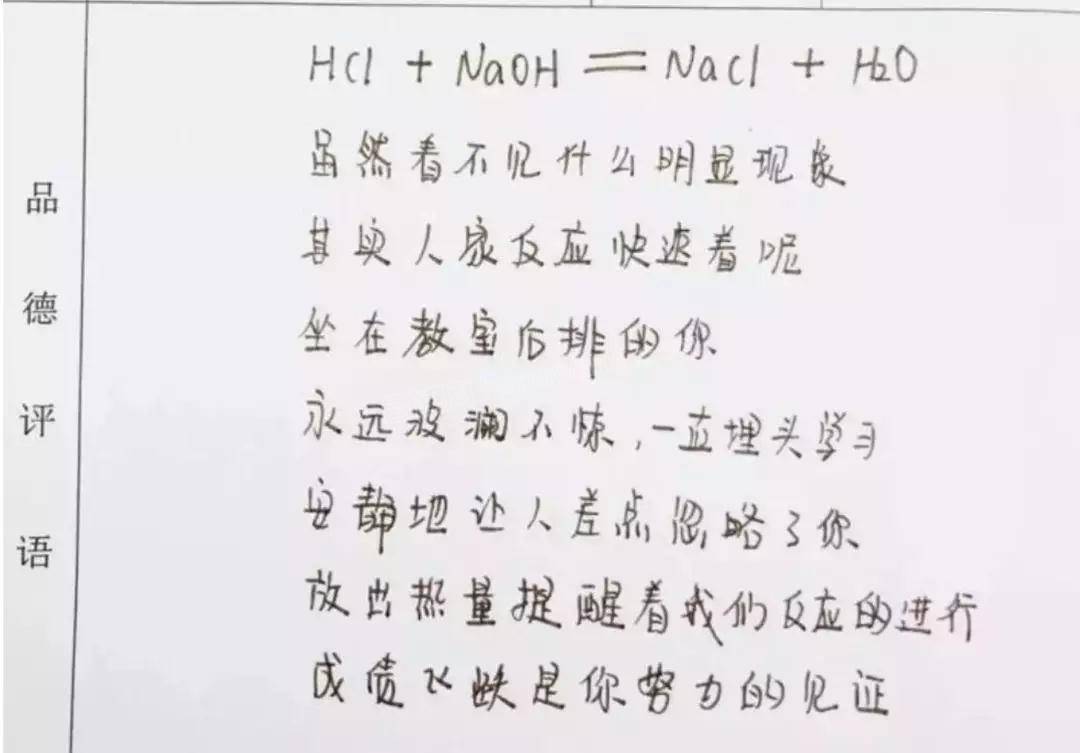 品德评语
HCl + NaOH = NaCl + H2O
虽然看不见什么明显现象
其实人家反应快速着呢
坐在教室后排的你
永远波澜不惊，一直埋头学习
安静地让人差点忽略了你
放出热量提醒着我们反应的进行
成绩飞跃是你努力的见证